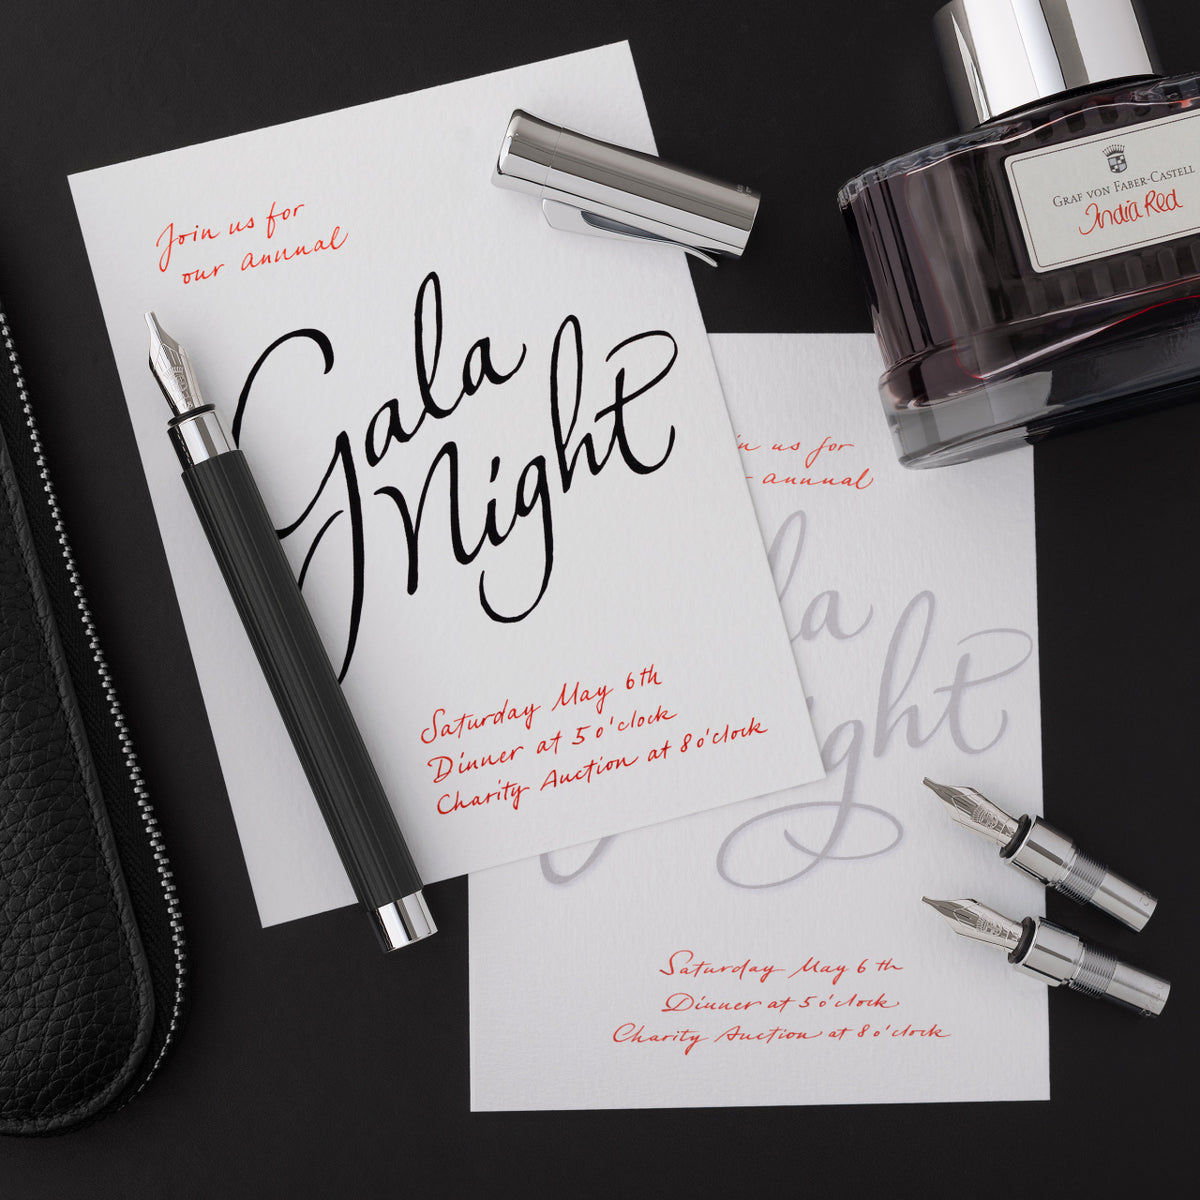 Join us for
our annual
Gala
Night
Saturday May 6th
Dinner at 5 o'clock
Charity Auction at 8 o'clock
GRAF VON FABER-CASTELL
India Red
us for
annual
la
ght
Saturday May 6 th
Dinner at 5 o'clock
Charity Auction at 8 o'clock